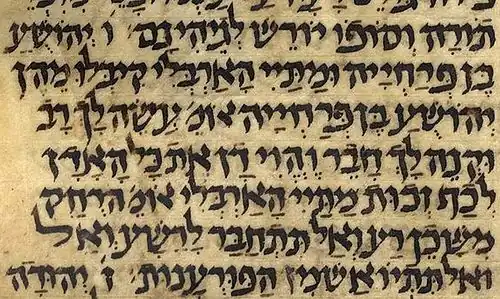 תורה וסופו יורש לגיהינם׳ ו יהושע
בן פרחייה ומתיי הארבלי קיבלו מהן
יהושע בן פרחייה אומ׳ עשה לך רב
וקנה לך חבר והוי דן את כל האדן
לכף זכות מתיי הארבלי אומ׳ הרחק
משכן רע ואל תתחבר לרשע ואל
ואל תתיואש מן הפורענות׳ ז יהודה